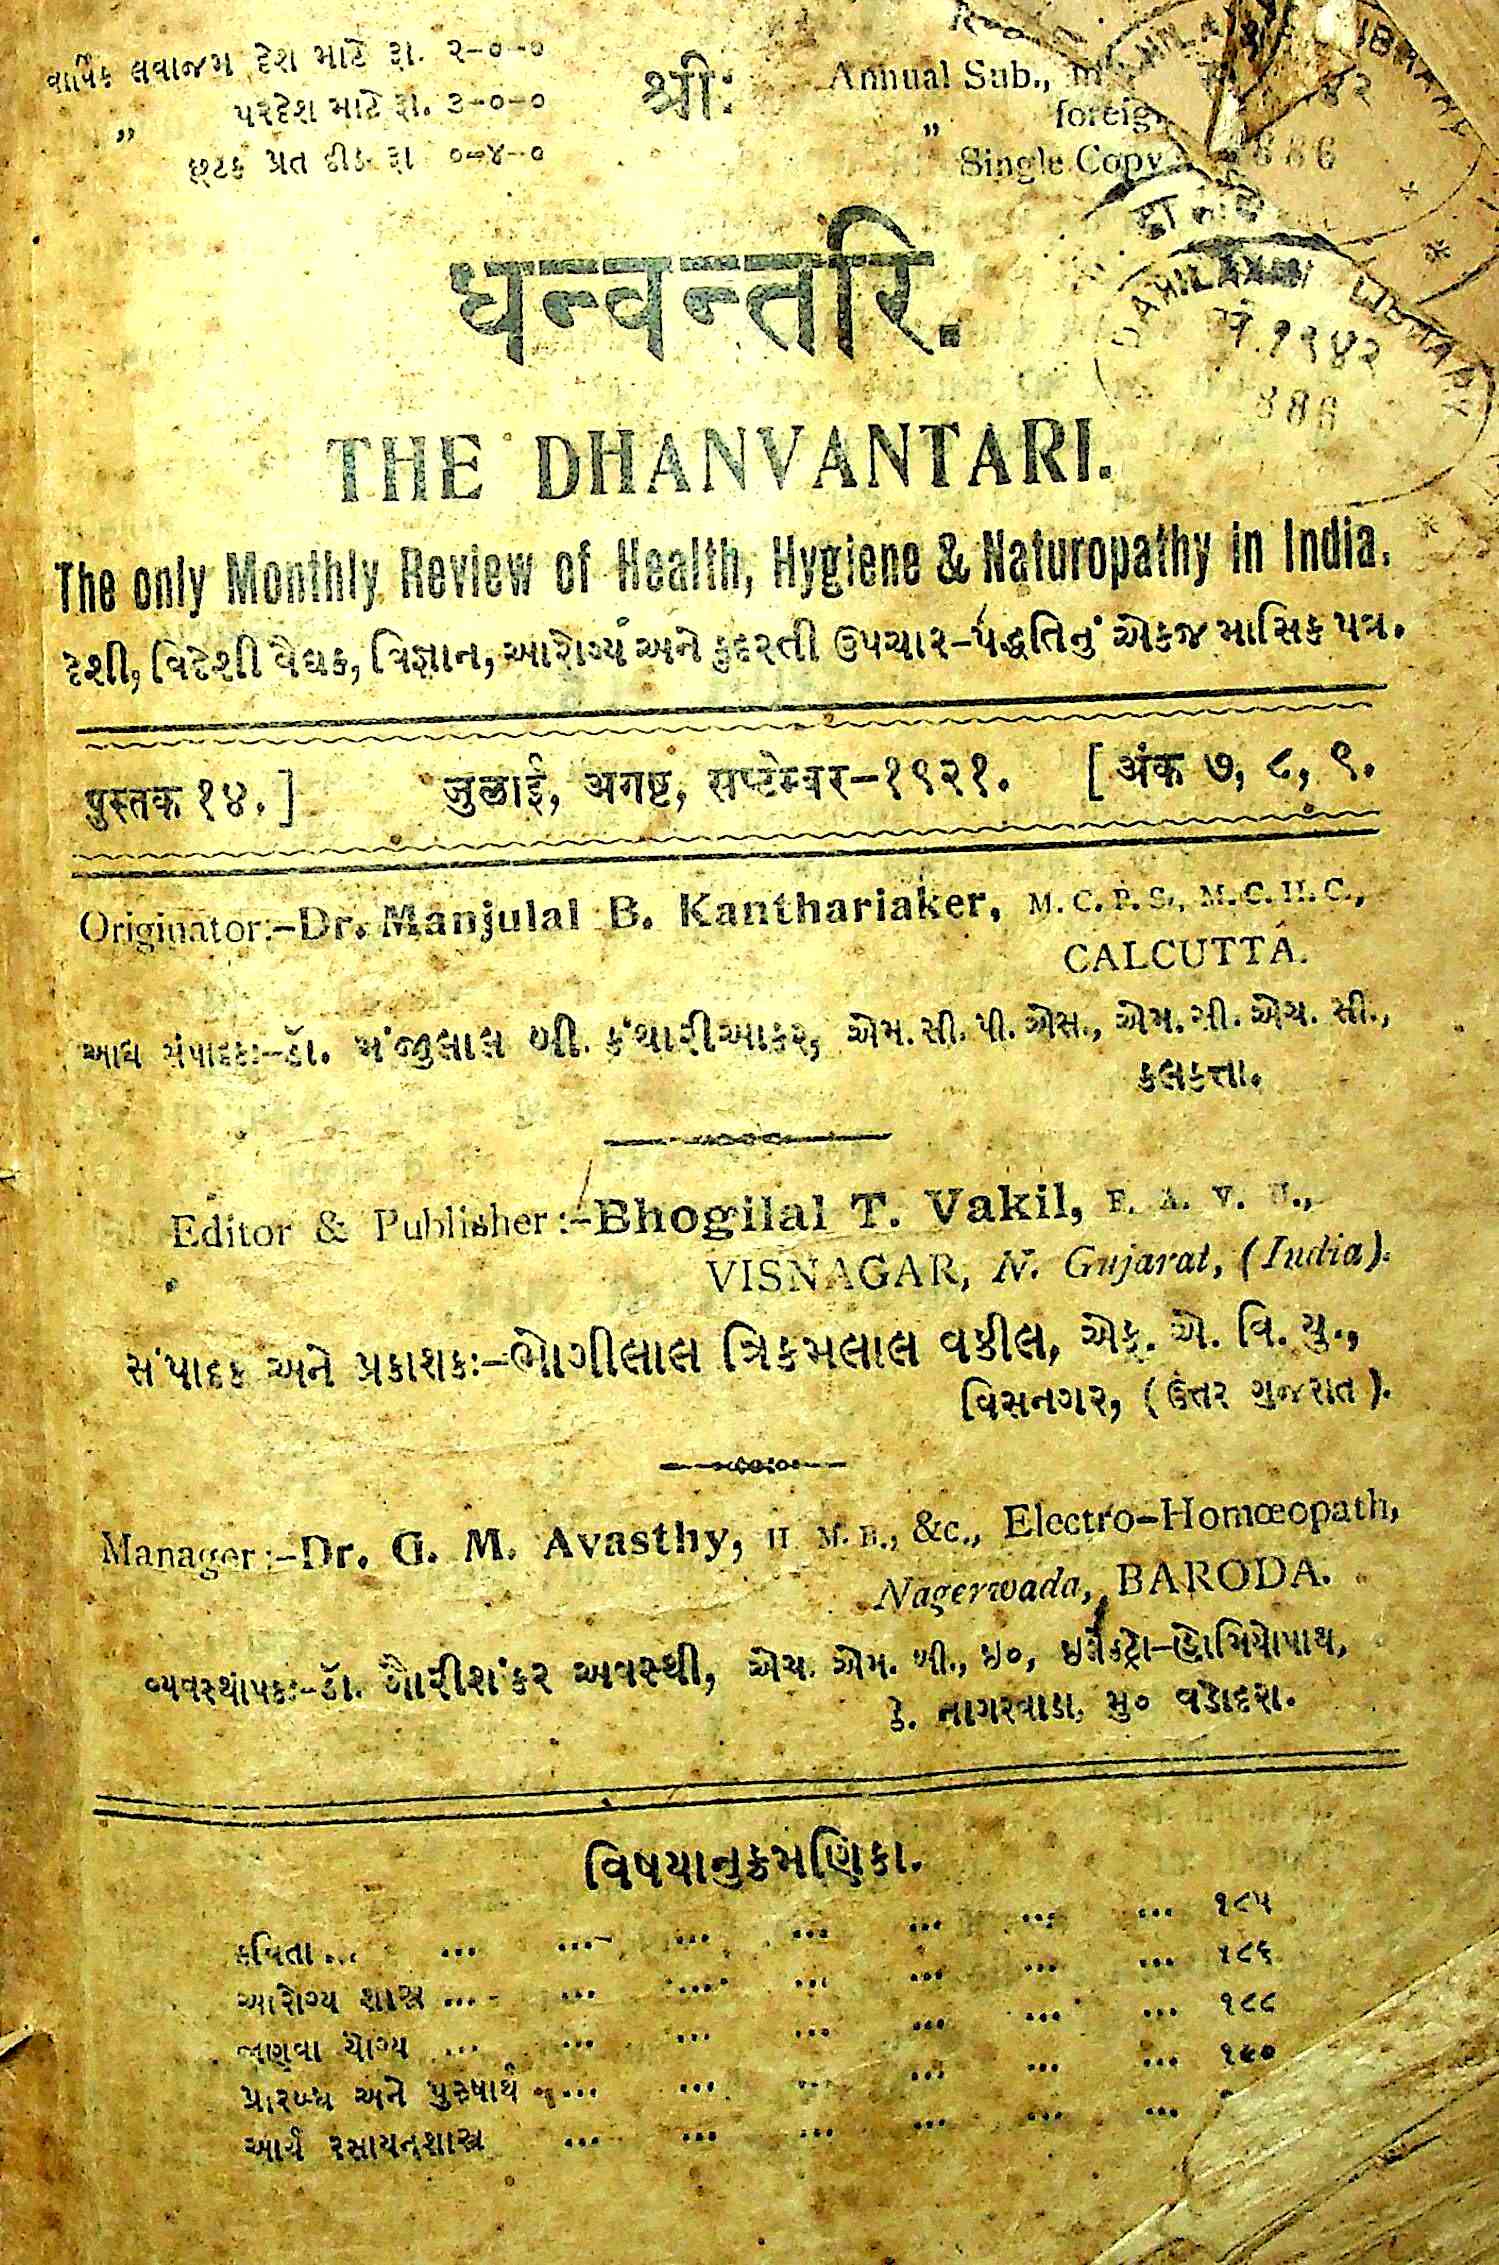 વાર્ષિક લવાજમ દેશ માટે રૂા. ૨-૦-૦
„ પરદેશ માટે રૂા. ૩-૦-૦
છૂટક પ્રત દીઠ રૂા ૦-૪-૦
श्री:
Annual Sub.,
„
Single Copy
DAHILAXMI LIBRARY
धन्वन्तरि.
THE DHANVANTARI.
The only Monthly Review of Health, Hygiene & Naturopathy in India.
દેશી, વિદેશી વૈદ્યક, વિજ્ઞાન, આરોગ્ય અને કુદરતી ઉપચાર-પદ્ધતિનું એકજ માસિક પત્ર.
पुस्तक १४. ] जुलाई, अगष्ट, सप्टेम्बर-१९२१. [ अंक ७, ८, ९.
Originator:-Dr. Manjulal B. Kanthariaker, M. C. P. S., M. C. H. C.,
CALCUTTA.
આદ્ય સંપાદક:-ડૉ. મંજુલાલ બી. કંથારીઆકર, એમ. સી. પી. એસ., એમ. સી. એચ. સી.,
કલકત્તા.
Editor & Publisher:-Bhogilal T. Vakil, F. A. V. U.,
VISNAGAR, N. Gujarat, (India).
સંપાદક અને પ્રકાશક:-ભોગીલાલ ત્રિકમલાલ વકીલ, એફ. એ. વિ. યુ.,
વિસનગર, ( ઉત્તર ગુજરાત ).
Manager:-Dr. G. M. Avasthy, H. M. B., &c., Electro-Homœopath,
Nagerwada, BARODA.
વ્યવસ્થાપક:-ડૉ. ગૌરીશંકર અવસ્થી, એચ. એમ. બી., ઇ૦, ઇલેક્ટ્રો-હોમિયોપાથ,
ઠે. નાગરવાડા, મુ૦ વડોદરા.
વિષયાનુક્રમણિકા.
કવિતા ... ... ... ... ... ... ... ... ૧૮૫
આરોગ્ય શાસ્ત્ર ... ... ... ... ... ... ... ૧૮૬
જાણવા યોગ્ય ... ... ... ... ... ... ... ૧૮૮
પ્રારબ્ધ અને પુરુષાર્થ ... ... ... ... ... ... ૧૯૦
આર્ય રસાયનશાસ્ત્ર ... ... ... ... ... ...